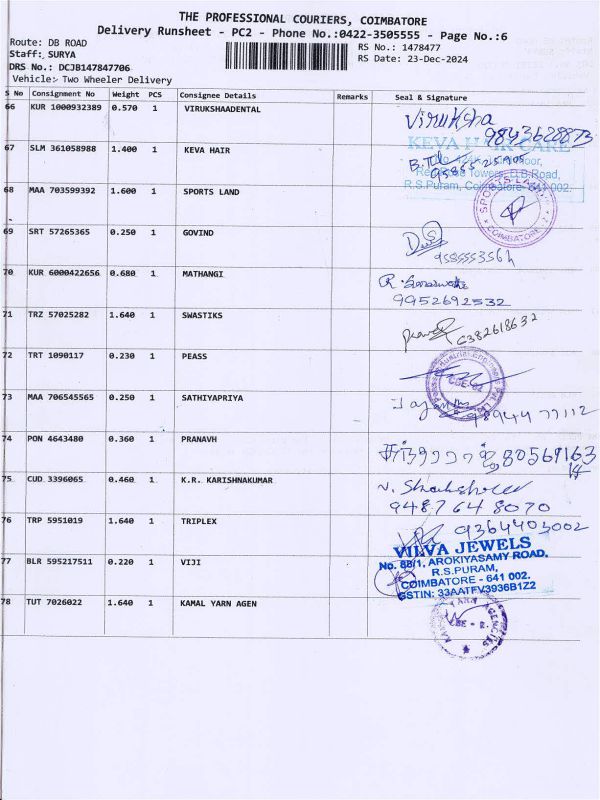 THE PROFESSIONAL COURIERS, COIMBATORE
Delivery Runsheet - PC2 - Phone No.:0422-3505555 - Page No.:6
Route: DB ROAD
RS No.: 1478477
Staff: SURYA
RS Date: 23-Dec-2024
DRS No.: DCJB147847706
Vehicle:- Two Wheeler Delivery
S No Consignment No Weight PCS Consignee Details Remarks Seal & Signature
66 KUR 1000932389 0.570 1 VIRUKSHAADENTAL Viruksha
9843628873
67 SLM 361058988 1.400 1 KEVA HAIR
KEVA HAIR CARE
Floor,
Towers, D.B.Road,
R.S.Puram, Coimbatore- 641 002.
68 MAA 703599392 1.600 1 SPORTS LAND
SPORTS LAND
COIMBATORE
69 SRT 57265365 0.250 1 GOVIND
70 KUR 6000422656 0.680 1 MATHANGI
9952692532
71 TRZ 57025282 1.640 1 SWASTIKS 6382618632
72 TRT 1090117 0.230 1 PEASS
CBE-02
73 MAA 706545565 0.250 1 SATHIYAPRIYA
9894477112
74 PON 4643480 0.360 1 PRANAVH
80569163
75 CUD 3396065 0.460 1 K.R. KARISHNAKUMAR
9487648070
76 TRP 5951019 1.640 1 TRIPLEX 9364403002
VILVA JEWELS
No. 88/1, AROKIYASAMY ROAD,
77 BLR 595217511 0.220 1 VIJI R.S.PURAM,
COIMBATORE - 641 002.
GSTIN: 33AATFV3936B1Z2
78 TUT 7026022 1.640 1 KAMAL YARN AGEN
AGENCIES
CBE - 2.